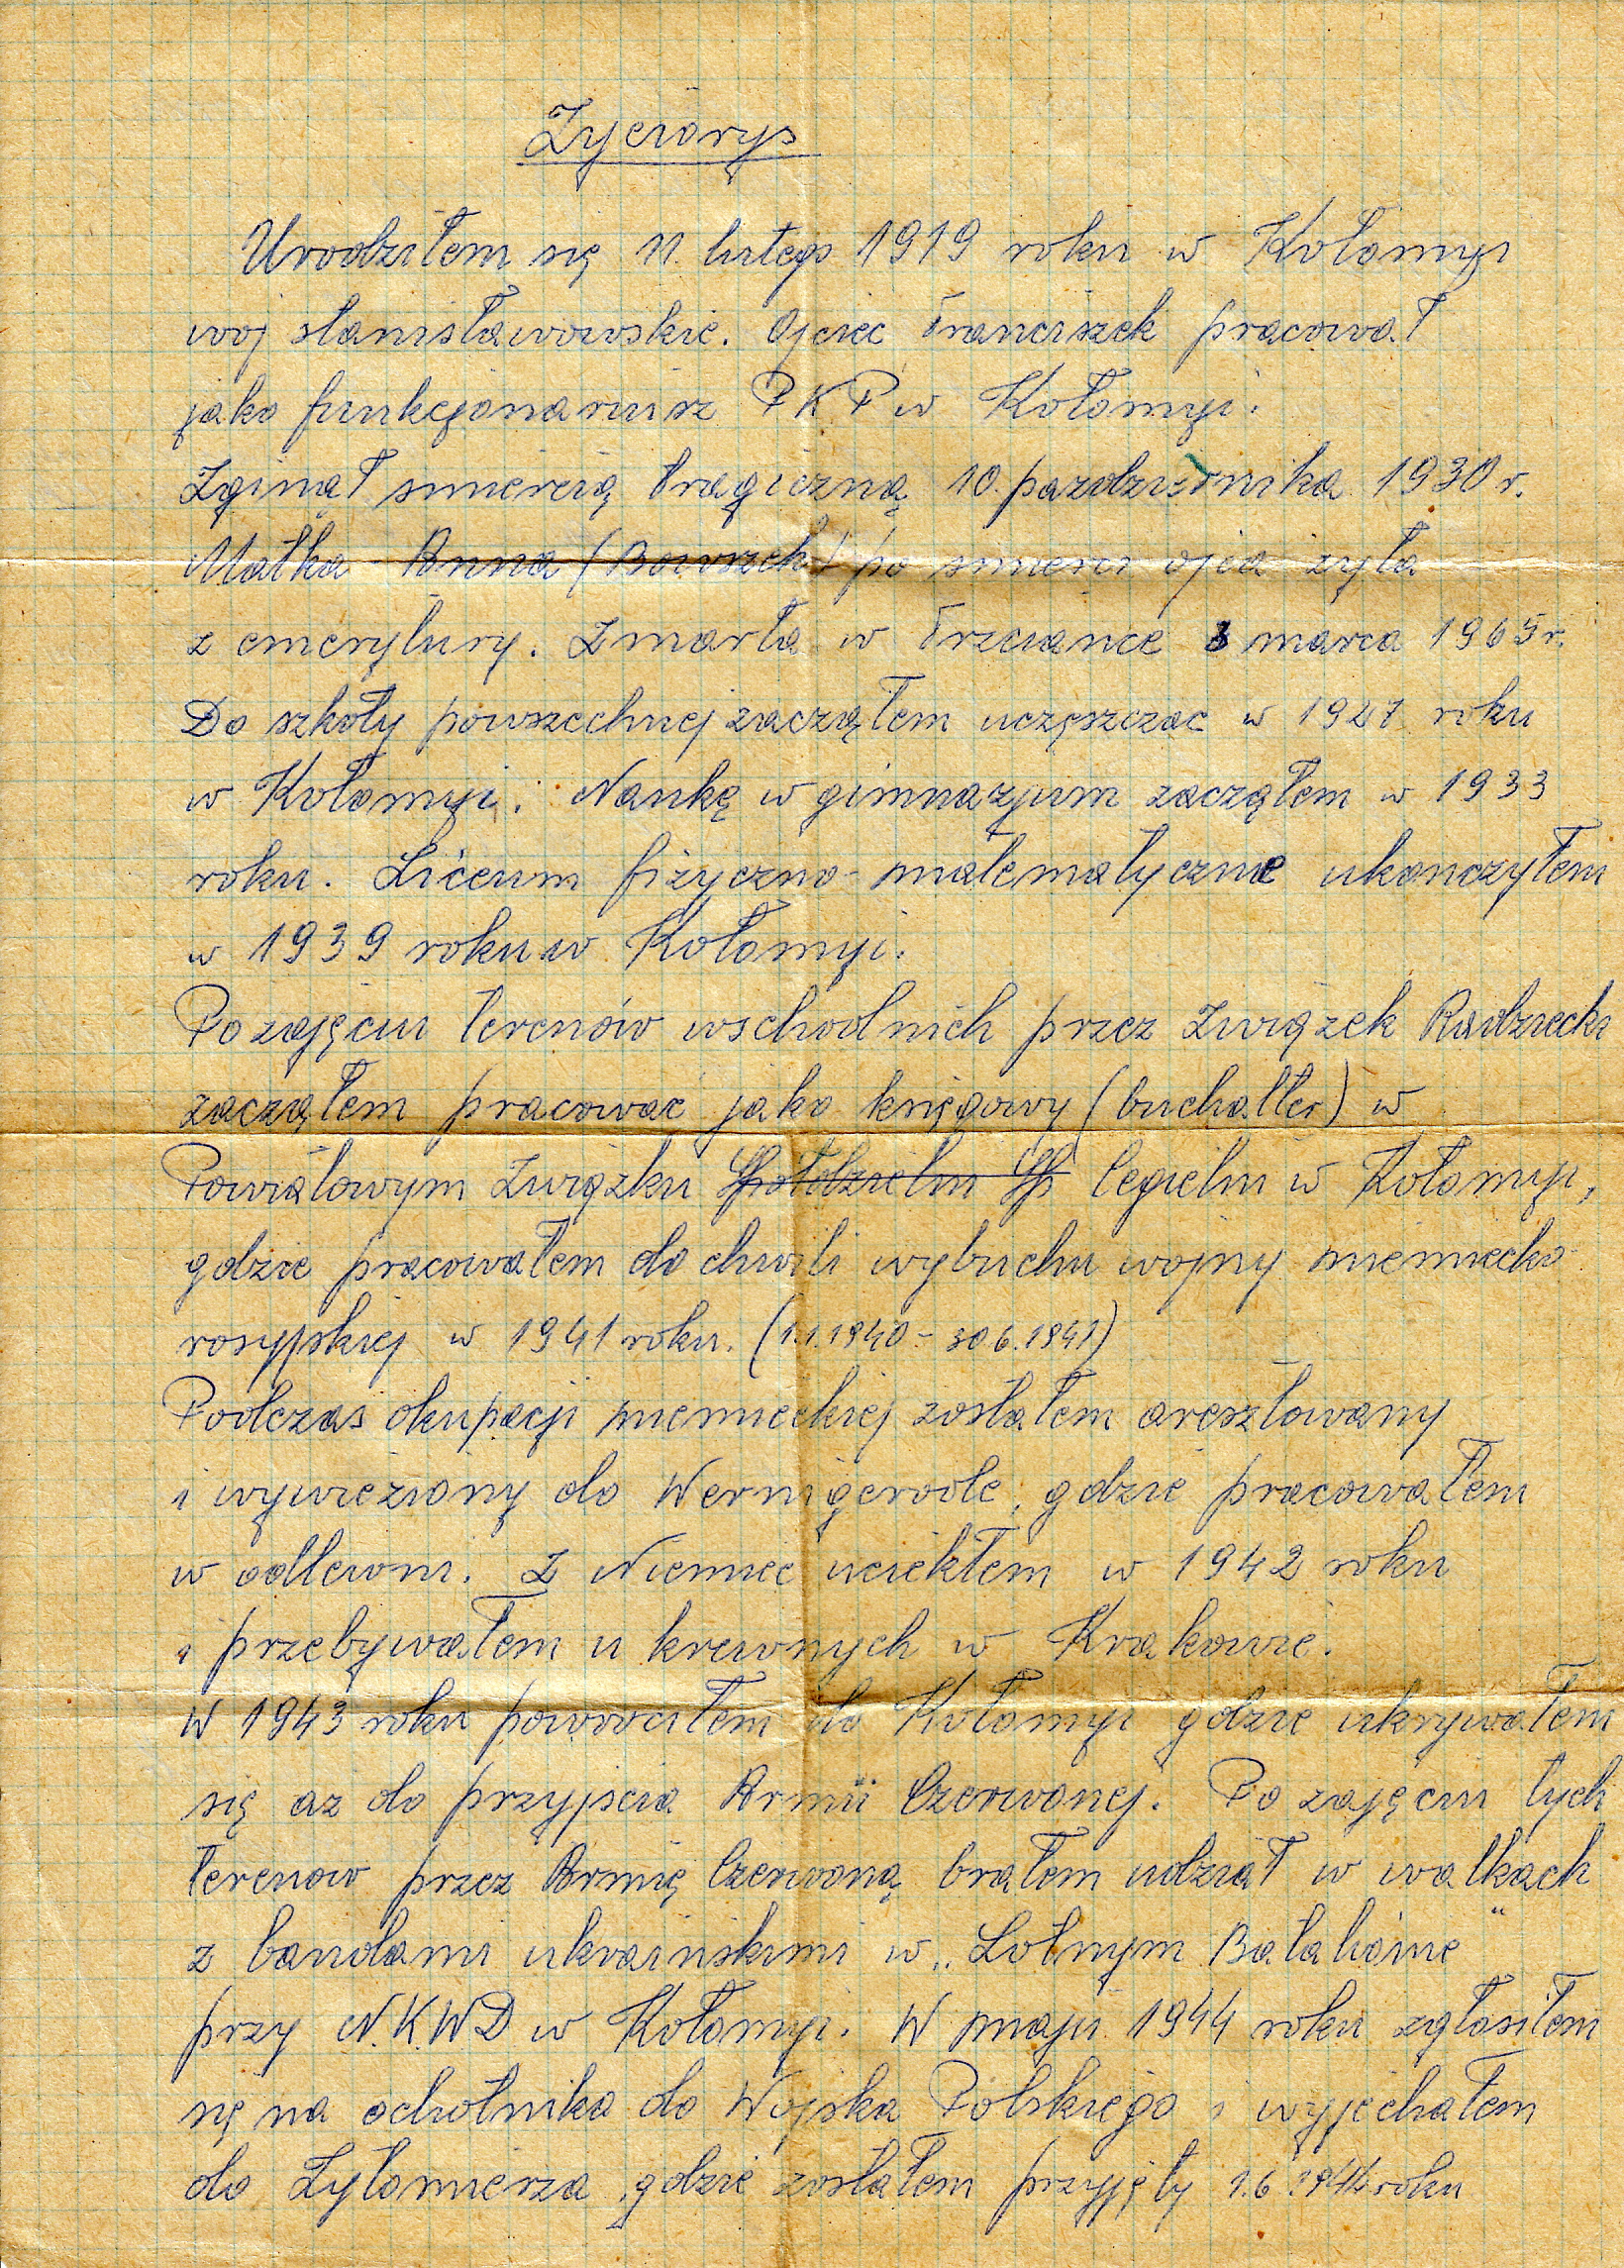 Życiorys
Urodziłem się 11. lutego 1919 roku w Kołomyi
woj stanisławowskie. Ojciec Franciszek pracował
jako funkcjonariusz PKP w Kołomyi.
Zginął smiercią tragiczną 10. pazdziernika 1930 r.
Matka - Anna (Bowszek) po smierci ojca żyła
z emerytury. Zmarła w Trzciance 3 marca 1965 r.
Do szkoły powszechnej zacząłem uczęszczac w 1927 roku
w Kołomyi. Naukę w gimnazjum zacząłem w 1933
roku. Liceum fizyczno-matematyczne ukonczyłem
w 1939 roku w Kołomyi.
Po zajęciu terenów wschodnich przez Związek Radziecki
zacząłem pracować jako księgowy (buchalter) w
Powiatowym Związku Spółdzielni Sp Cegielni w Kołomyi,
gdzie pracowałem do chwili wybuchu wojny niemiecko-
rosyjskiej w 1941 roku. (1.1.1940 - 30 6.1941)
Podczas okupacji niemieckiej zostałem aresztowany
i wywieziony do Wernigerode, gdzie pracowałem
w odlewni. Z Niemiec uciekłem w 1942 roku
i przebywałem u krewnych w Krakowie.
W 1943 roku powrociłem do Kołomyi gdzie ukrywałem
się az do przyjscia Armii Czerwonej. Po zajęciu tych
terenow przez Armię Czerwoną brałem udział w walkach
z bandami ukraińskimi w „Lotnym Batalionie"
przy N.K.W.D w Kołomyi. W maju 1944 roku zgłosiłem
się na ochotnika do Wojska Polskiego i wyjechałem
do Żytomierza, gdzie zostałem przyjęty 1.6 1944 roku